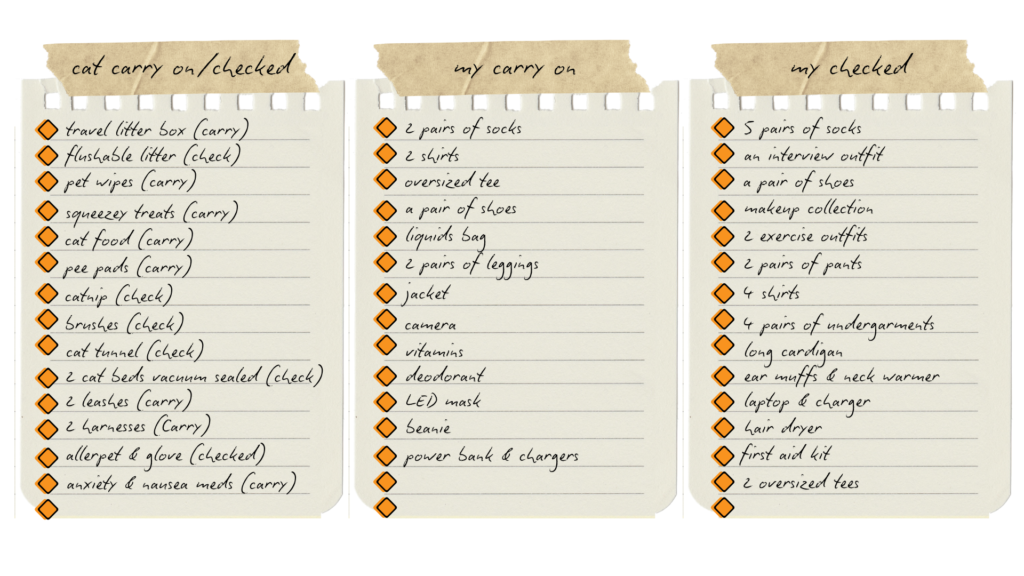 cat carry on/checked
travel litter box (carry)
flushable litter (check)
pet wipes (carry)
squeezey treats (carry)
cat food (carry)
pee pads (carry)
catnip (check)
brushes (check)
cat tunnel (check)
2 cat beds vacuum sealed (check)
2 leashes (carry)
2 harnesses (Carry)
allerpet & glove (checked)
anxiety & nausea meds (carry)
my carry on
2 pairs of socks
2 shirts
oversized tee
a pair of shoes
liquids bag
2 pairs of leggings
jacket
camera
vitamins
deodorant
LED mask
beanie
power bank & chargers
my checked
5 pairs of socks
an interview outfit
a pair of shoes
makeup collection
2 exercise outfits
2 pairs of pants
4 shirts
4 pairs of undergarments
long cardigan
ear muffs & neck warmer
laptop & charger
hair dryer
first aid kit
2 oversized tees